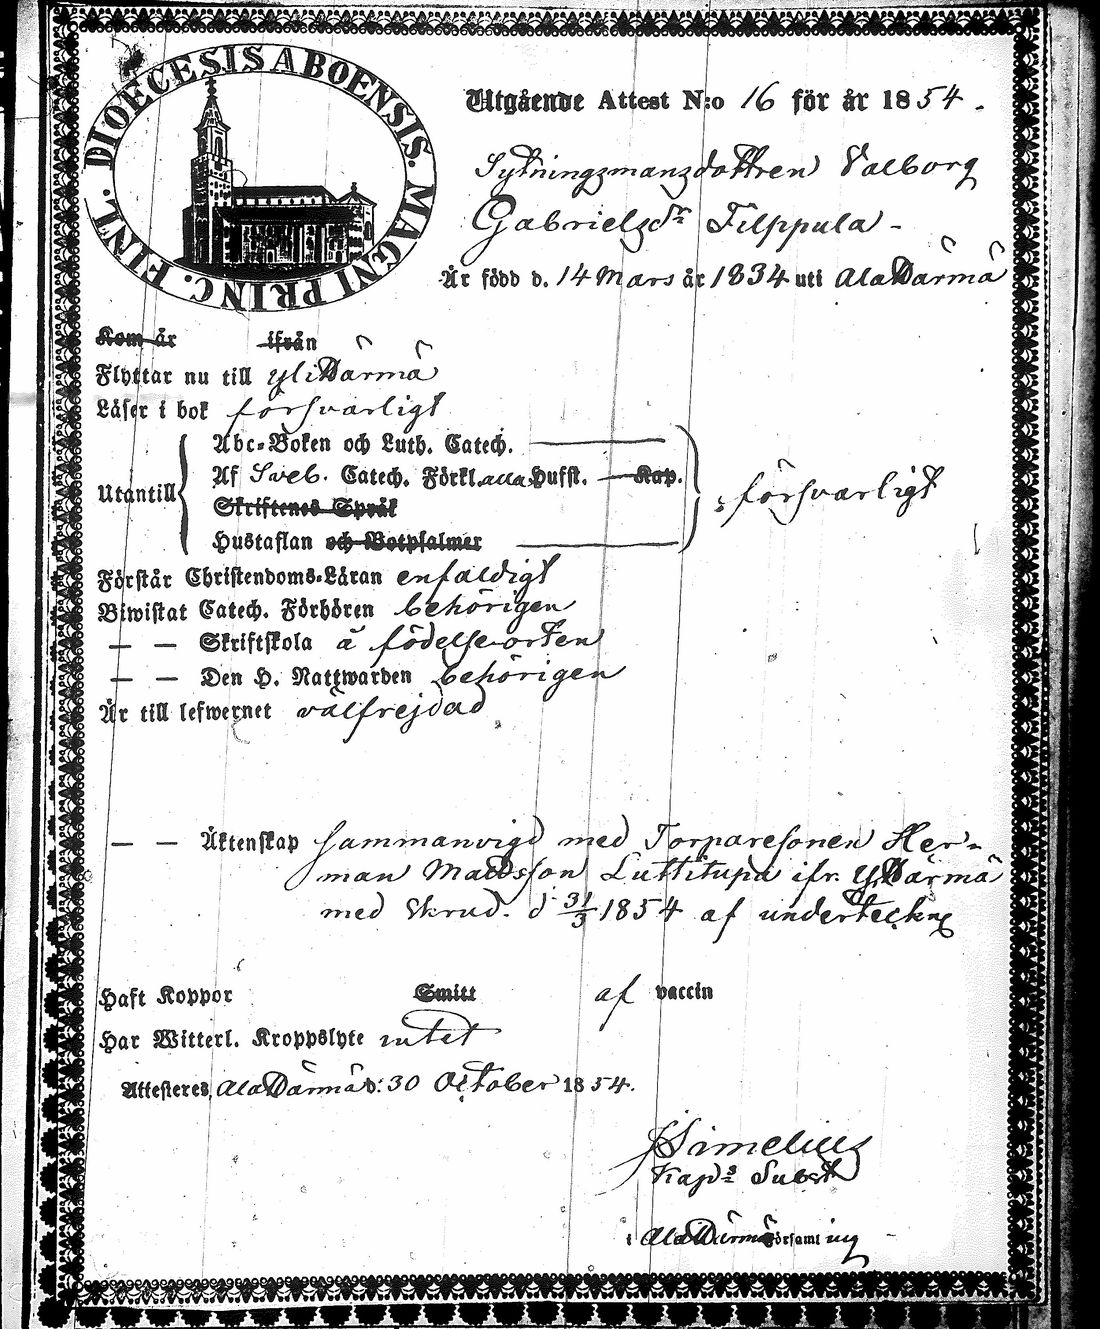 DIOECESIS ABOENSIS. MAGNI PRINC. FINL.
Utgående Attest N:o 16 för år 1854.
Sytningzmanzdottren Valborg
Gabrielzdr Filppula
Är född d. 14 Mars år 1834 uti Ala Härmä
Kom år ifrån
Flyttar nu till Yli Härmä
Läser i bok försvarligt
Abc-Boken och Luth. Catech.
Af Sveb. Catech. Förkl. alla Hufst. Kap.
Utantill försvarligt
Skriftenes Språk
Hustaflan och Botpsalmer
Förstår Christendoms-Läran enfaldigt
Biwistat Catech. Förhören behörigen
— — Skriftskola å födelseorten
— — Den H. Nattwarden behörigen
Är till lefwernet välfrejdad
— — Äktenskap sammanvigd med Torparesonen Her-
man Mattsson Luttitupa ifr. Y.Härmä
med skrud. d. 31/3 1854 af underteckn
Haft Koppor Smitt af vaccin
Har Witterl. Kroppslyte intet
Attesteres, Ala Härmä d: 30 October 1854.
Simelius
Kaps Subst
i Ala Härmä Församling